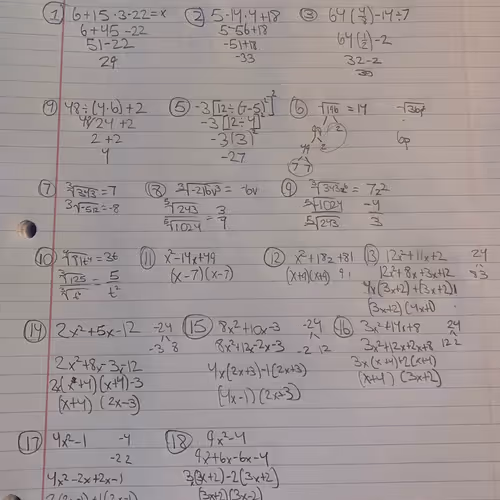 ① 6+15·3-22=x
6+45-22
51-22
29
② 5-14·4+18
5-56+18
-51+18
-33
③ 64(4/8)-14÷7
64(1/2)-2
32-2
④ 48÷(4·6)+2
48/24+2
2+2
4
⑤ -3[12÷(-5)]²
-3[12÷4]²
-3(3)²
-27
⑥ √196=14
7 7
⑦ ∛343=7
∛-512=-8
⑧ ∛-216v³=-6v
⁵√243
⁵√1024
= 3/4
⑨ 7z2
⁵√-1024
⁵√243
-4
3
⑩ ⁴√81t⁴=3t
∛125
∛t⁶
= 5/t²
⑪ x²-14x+49
(x-7)(x-7)
⑫ x²+18x+81
(x+9)(x+9)
⑬ 12x²+11x+2
24
12x²+8x+3x+2
8 3
4x(3x+2)+(3x+2)1
(3x+2)(4x+1)
⑭ 2x²+5x-12
-24
-3 8
2x²+8x-3x-12
2x(x+4)(x+4)-3
(x+4)(2x-3)
⑮ 8x²+10x-3
-24
-2 12
8x²+12x-2x-3
4x(2x+3)-1(2x+3)
(4x-1)(2x+3)
⑯ 3x²+14x+8
24
12 2
3x²+12x+2x+8
3x(x+4)+2(x+4)
(x+4)(3x+2)
⑰ 4x²-1
-4
-2 2
4x²-2x+2x-1
⑱ 9x²-4
9x²+6x-6x-4
3x(3x+2)-2(3x+2)
(3x+2)(3x-2)